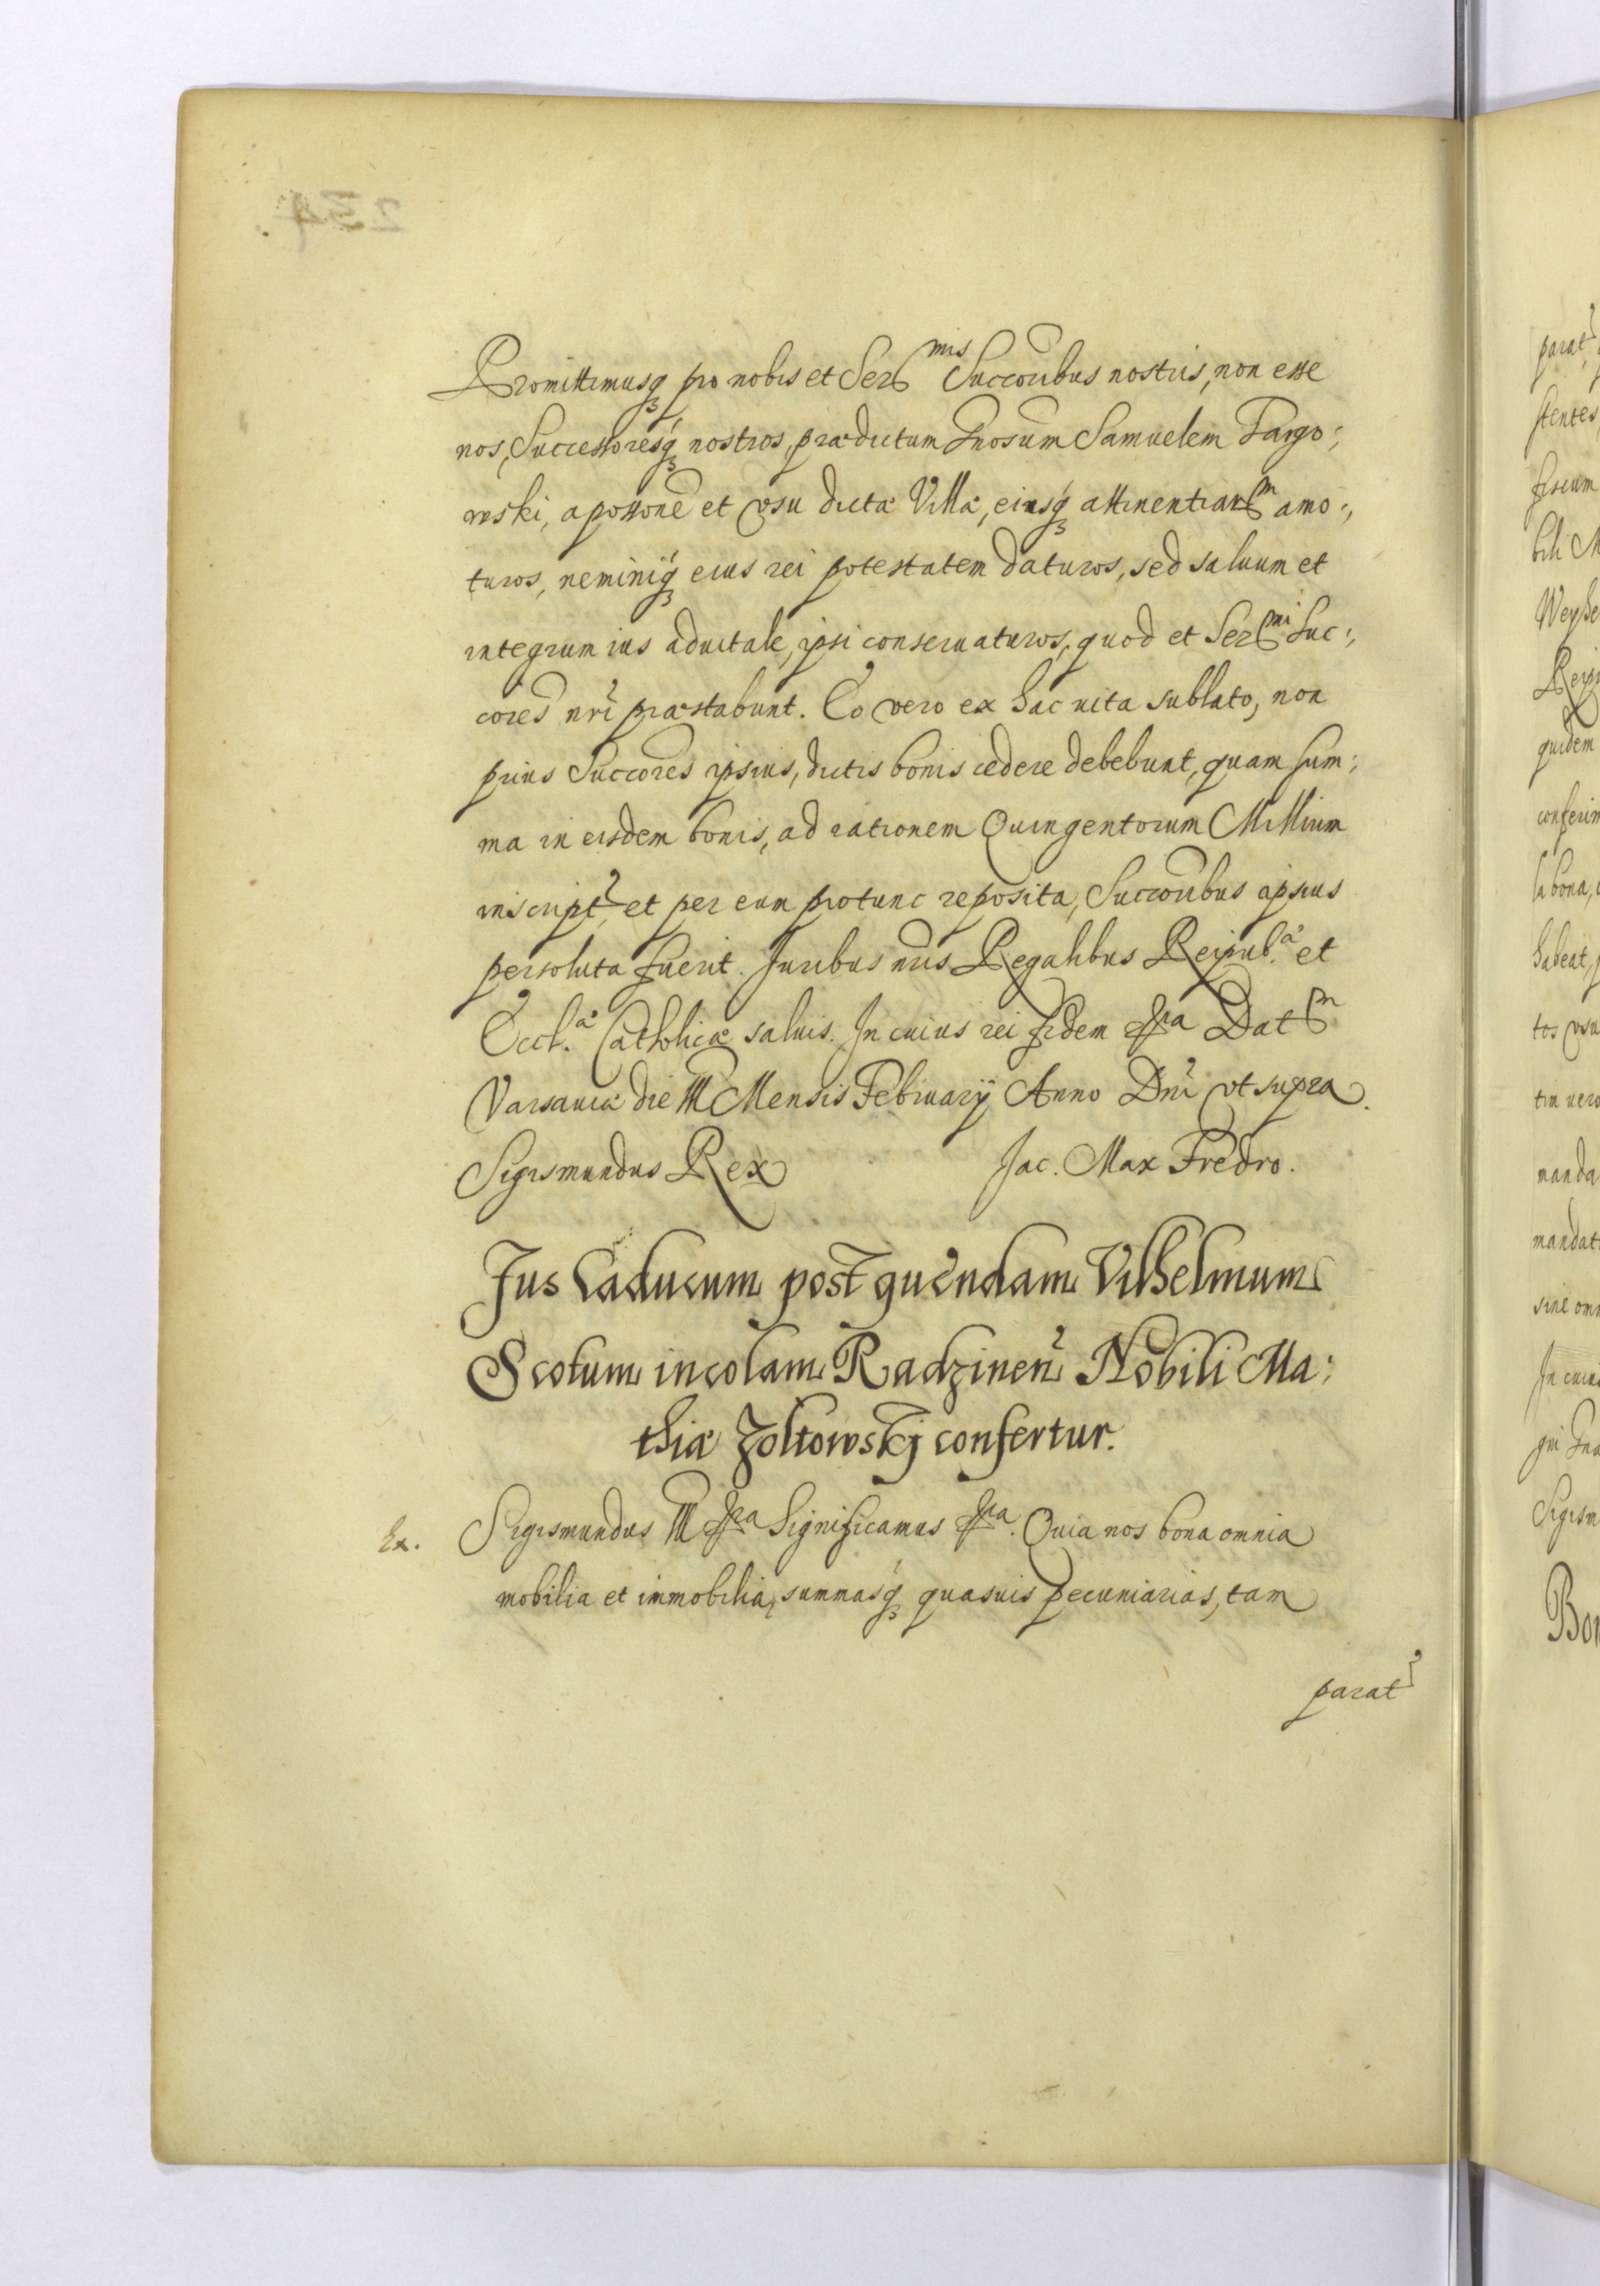 Promittimusq₃ pro nobis et Ser^mis Succoribus nostris, non esse
nos, Successoresq₃ nostros, prædictum Gnosum Samuelem Targo:,
wski, a possone et vsu dictæ Villæ, eiusq₃ attinentiar^m amo:,
turos, neminiq₃ eius rei potestatem daturos, sed saluum et
integrum ius aduitale, ipsi conseruaturos, quod et Ser^mi Suc:,
cores nri præstabunt. Eo vero ex hac uita sublato, non
prius Succores ipsius, dictis bonis cedere debebunt, quam sum:,
ma in eisdem bonis, ad rationem Quingentorum Millium
inscript et per eum protunc reposita, Succoribus ipsius
persoluta fuerit. Juribus nris Regalibus Reipub.æ et
Eccl.æ Catholicæ saluis. In cuius rei fidem &ra Dat^m
Varsauiæ die III Mensis February Anno Dni vt supra.
Sigismundus Rex Jac. Max Fredro.
Jus Caducum post quendam Vilhelmum
Scotum incolam Radzinen Nobili Ma:
thiæ Zoltowskj confertur.
Ex. Sigismundus III &ra Significamus &ra. Quia nos bona omnia
mobilia et immobilia, summasq₃ quasuis pecuniarias, tam
parat
parat
stentes
fiscum
bili M
Weyhe
quidem
conferim
la bona,
habeat,
tos vsu
tin uero
manda
mandat
sine om
In cuius
Sigism
Bon